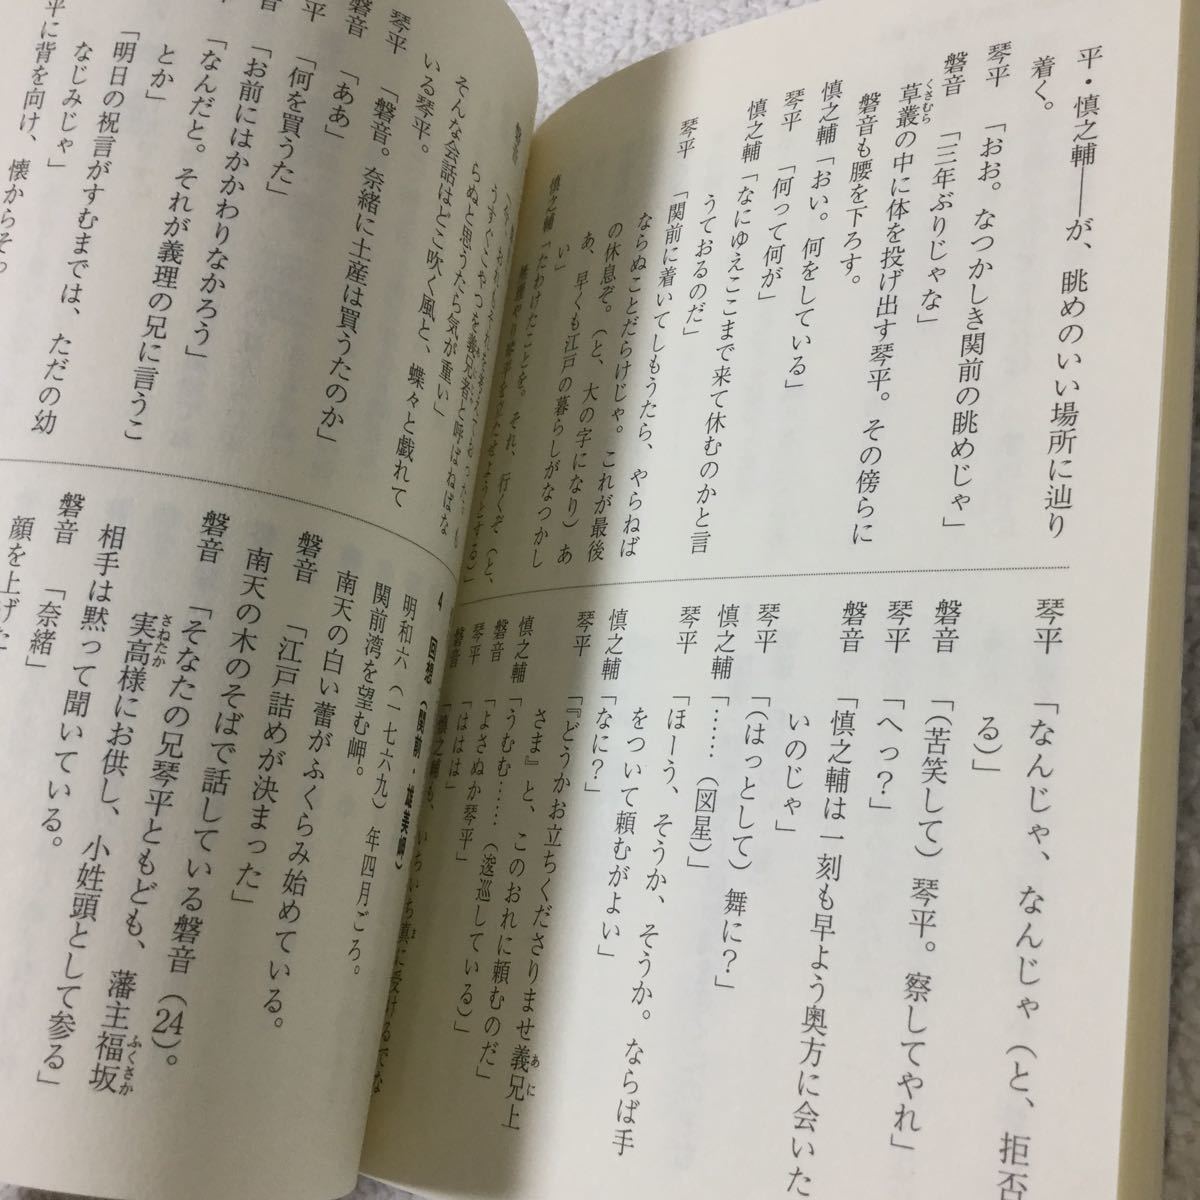 平・慎之輔――が、眺めのいい場所に辿り
着く。
琴平「おお。なつかしき関前の眺めじゃ」
磐音「三年ぶりじゃな」
草叢の中に体を投げ出す琴平。その傍らに
くさむら
磐音も腰を下ろす。
慎之輔「おい。何をしている」
琴平「何って何が」
慎之輔「なにゆえここまで来て休むのかと言
うておるのだ」
琴平「関前に着いてしもうたら、やらねば
ならぬことだらけじゃ。これが最後
の休息ぞ。（と、大の字になり）あ
あ、早くも江戸の暮らしがなつかし
い」
慎之輔「たわけたことを。それ、行くぞ（と、
無理やり琴平を立たせようとする）」
琴平「なんじゃ、なんじゃ（と、拒否
る）」
磐音「（苦笑して）琴平。察してやれ」
琴平「へっ？」
磐音「慎之輔は一刻も早よう奥方に会いた
いのじゃ」
琴平「（はっとして）舞に？」
慎之輔「……（図星）」
琴平「ほーう、そうか、そうか。ならば手
をついて頼むがよい」
慎之輔「なに？」
琴平「『どうかお立ちくださりませ義兄上
あに
さま』と、このおれに頼むのだ」
慎之輔「うむむ……（逡巡している）」
磐音「よさぬか琴平」
琴平「ははは」
磐音「慎之輔も、いちいち真に受けるでな
ま
うすぐこやつを義兄者と呼ばねばな
らぬと思うたら気が重い」
そんな会話はどこ吹く風と、蝶々と戯れて
いる琴平。
琴平「磐音。奈緒に土産は買うたのか」
磐音「ああ」
「何を買うた」
「お前にはかかわりなかろう」
「なんだと。それが義理の兄に言うこ
とか」
「明日の祝言がすむまでは、ただの幼
なじみじゃ」
平に背を向け、懐からそっ
4 回想（関前・雄美岬）
明和六（一七六九）年四月ごろ。
関前湾を望む岬。
南天の白い蕾がふくらみ始めている。
磐音「江戸詰めが決まった」
南天の木のそばで話している磐音（24）。
磐音「そなたの兄琴平ともども、藩主福坂
ふくさか
実高様にお供し、小姓頭として参る」
さねたか
相手は黙って聞いている。
磐音「奈緒」
顔を上げた